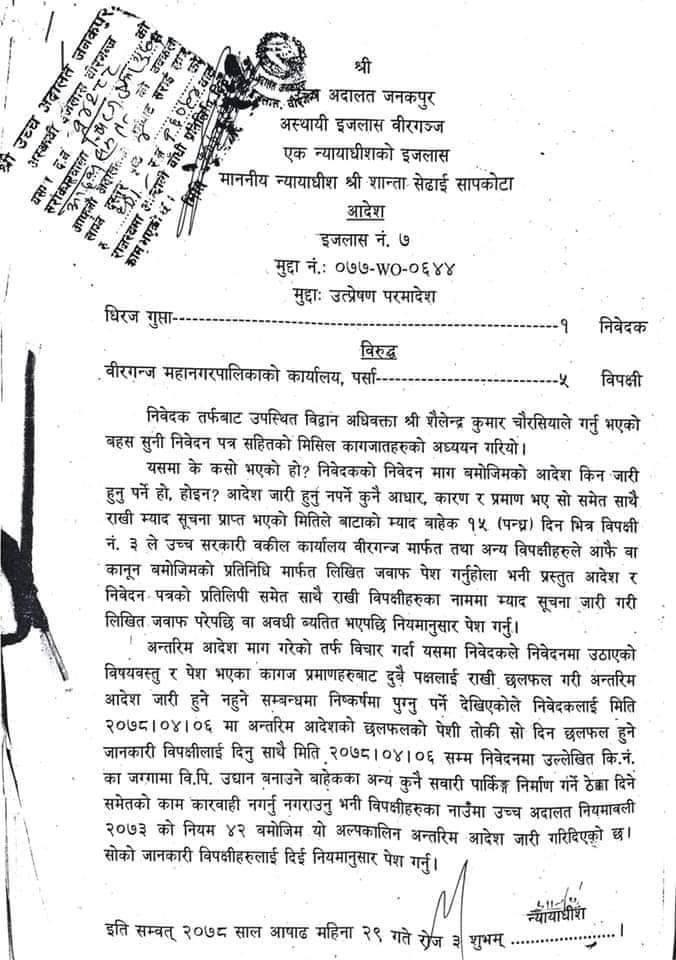 श्री उच्च अदालत जनकपुर
अस्थायी इजलास वीरगञ्ज
श्री
उच्च अदालत जनकपुर
अस्थायी इजलास वीरगञ्ज
एक न्यायाधीशको इजलास
माननीय न्यायाधीश श्री शान्ता सेढाई सापकोटा
आदेश
इजलास नं. ७
मुद्दा नं.: ०७७-WO-०६४४
मुद्दाः उत्प्रेषण परमादेश
धिरज गुप्ता---१ निवेदक
विरुद्ध
वीरगन्ज महानगरपालिकाको कार्यालय, पर्सा---५ विपक्षी
निवेदक तर्फबाट उपस्थित विद्वान अधिवक्ता श्री शैलेन्द्र कुमार चौरसियाले गर्नु भएको
बहस सुनी निवेदन पत्र सहितको मिसिल कागजातहरुको अध्ययन गरियो।
यसमा के कसो भएको हो? निवेदकको निवेदन माग बमोजिमको आदेश किन जारी
हुनु पर्ने हो, होइन? आदेश जारी हुनु नपर्ने कुनै आधार, कारण र प्रमाण भए सो समेत साथै
राखी म्याद सूचना प्राप्त भएको मितिले बाटाको म्याद बाहेक १५ (पन्ध्र) दिन भित्र विपक्षी
नं. ३ ले उच्च सरकारी वकील कार्यालय वीरगन्ज मार्फत तथा अन्य विपक्षीहरुले आफै वा
कानून बमोजिमको प्रतिनिधि मार्फत लिखित जवाफ पेश गर्नुहोला भनी प्रस्तुत आदेश र
निवेदन पत्रको प्रतिलिपी समेत साथै राखी विपक्षीहरुका नाममा म्याद सूचना जारी गरी
लिखित जवाफ परेपछि वा अवधी ब्यतित भएपछि नियमानुसार पेश गर्नु।
अन्तरिम आदेश माग गरेको तर्फ विचार गर्दा यसमा निवेदकले निवेदनमा उठाएको
विषयवस्तु र पेश भएका कागज प्रमाणहरुबाट दुबै पक्षलाई राखी छलफल गरी अन्तरिम
आदेश जारी हुने नहुने सम्बन्धमा निष्कर्षमा पुग्नु पर्ने देखिएकोले निवेदकलाई मिति
२०७८।०४।०६ मा अन्तरिम आदेशको छलफलको पेशी तोकी सो दिन छलफल हुने
जानकारी विपक्षीलाई दिनु साथै मिति २०७८।०४।०६ सम्म निवेदनमा उल्लेखित कि.नं.
का जग्गामा वि.पि. उद्यान बनाउने बाहेकका अन्य कुनै सवारी पार्किङ्ग निर्माण गर्ने ठेक्का दिने
समेतको काम कारवाही नगर्नु नगराउनु भनी विपक्षीहरुका नाउँमा उच्च अदालत नियमाबली
२०७३ को नियम ४२ बमोजिम यो अल्पकालिन अन्तरिम आदेश जारी गरिदिएको छ।
सोको जानकारी विपक्षीहरुलाई दिई नियमानुसार पेश गर्नु।
न्यायाधीश
इति सम्वत् २०७८ साल आषाढ महिना २९ गते रोज ३ शुभम् ......................।